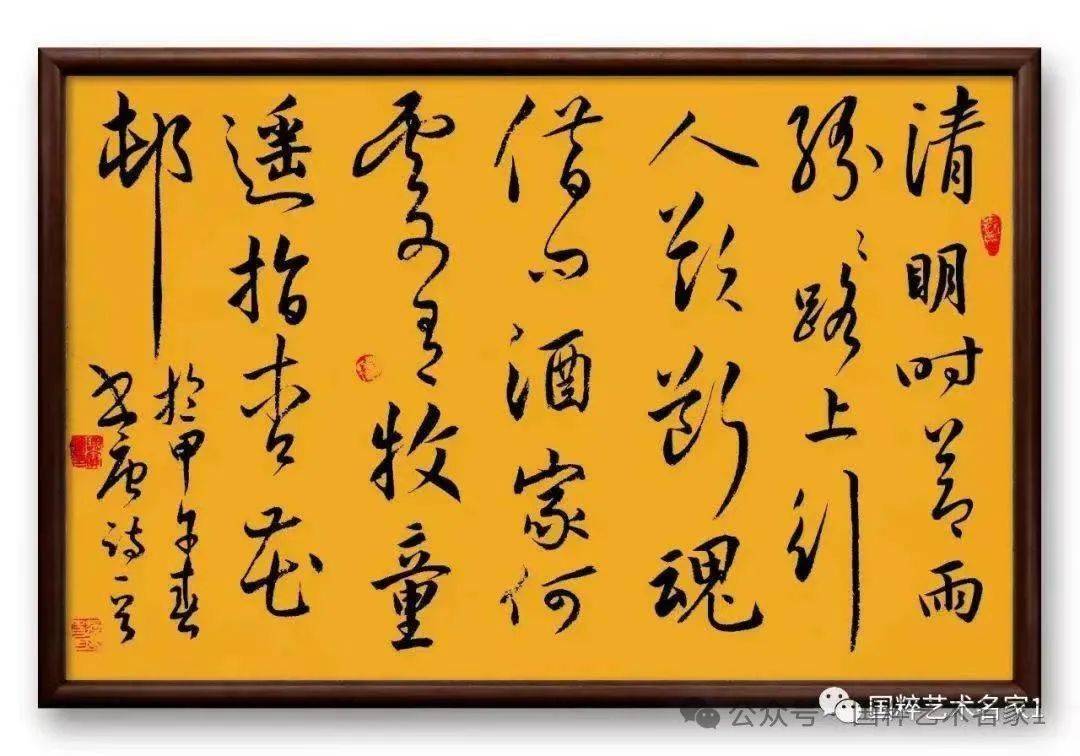 清明时节雨
纷々路上行
人欲断魂
借问酒家何
处有牧童
遥指杏花
邨
於甲午春
书唐诗一首
国粹艺术名家1
公众号 · 国粹艺术名家1